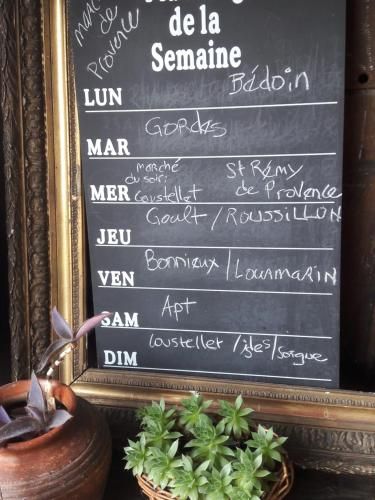 marché
de
Provence
de la
Semaine
LUN Bédoin
MAR Gordes
marché
du soir:
MER Coustellet
St Rémy
de Provence
JEU Goult / ROUSSILLON
VEN Bonnieux / Lourmarin
SAM Apt
DIM Coustellet / isles / Sorgue